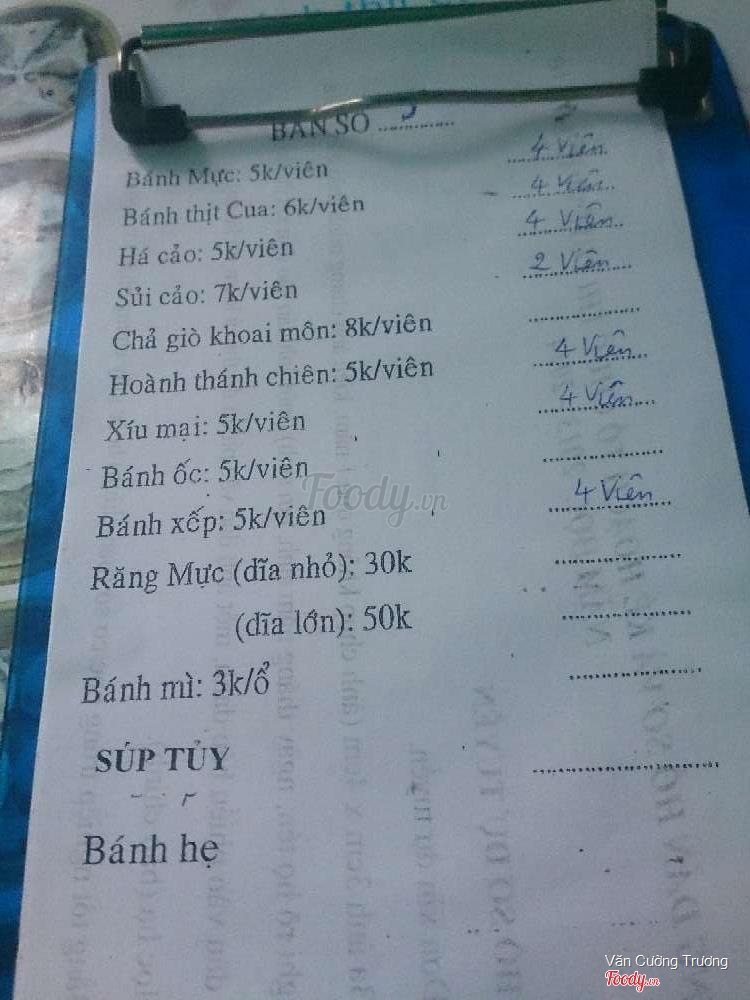 BÀN SỐ ..............
Bánh Mực: 5k/viên 4 Viên
Bánh thịt Cua: 6k/viên 4 Viên
Há cảo: 5k/viên 4 Viên
Sủi cảo: 7k/viên 2 Viên
Chả giò khoai môn: 8k/viên ....................
Hoành thánh chiên: 5k/viên 4 Viên
Xíu mại: 5k/viên 4 Viên
Bánh ốc: 5k/viên ....................
Bánh xếp: 5k/viên 4 Viên
Răng Mực (dĩa nhỏ): 30k ....................
(dĩa lớn): 50k ....................
Bánh mì: 3k/ổ ....................
SÚP TỦY ....................
Bánh hẹ
Foody.vn
Văn Cường Trương
Foody.vn